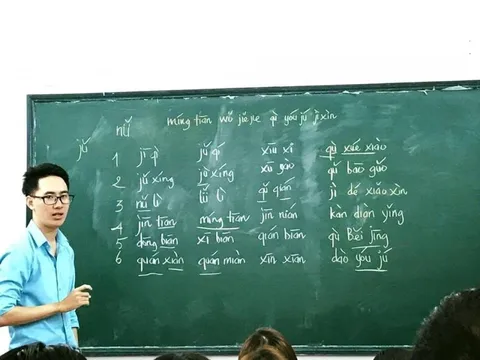 míng tiān wǒ jiějie qù yóu jú jì xìn
nǚ
jú
1 jī qì jǔ qí xiū xi qù xué xiào
2 jǔ xíng jǔ xíng xū yào qǔ bāo guǒ
3 nǔ lì lǜ lì qǔ qián jì dé xiǎo xīn
4 jīn tiān míng tiān jīn nián kàn diàn yǐng
5 dōng biān xī biān qián biān qù Běi jīng
6 quán xiàn quán miàn xīn xiān dào yóu jú